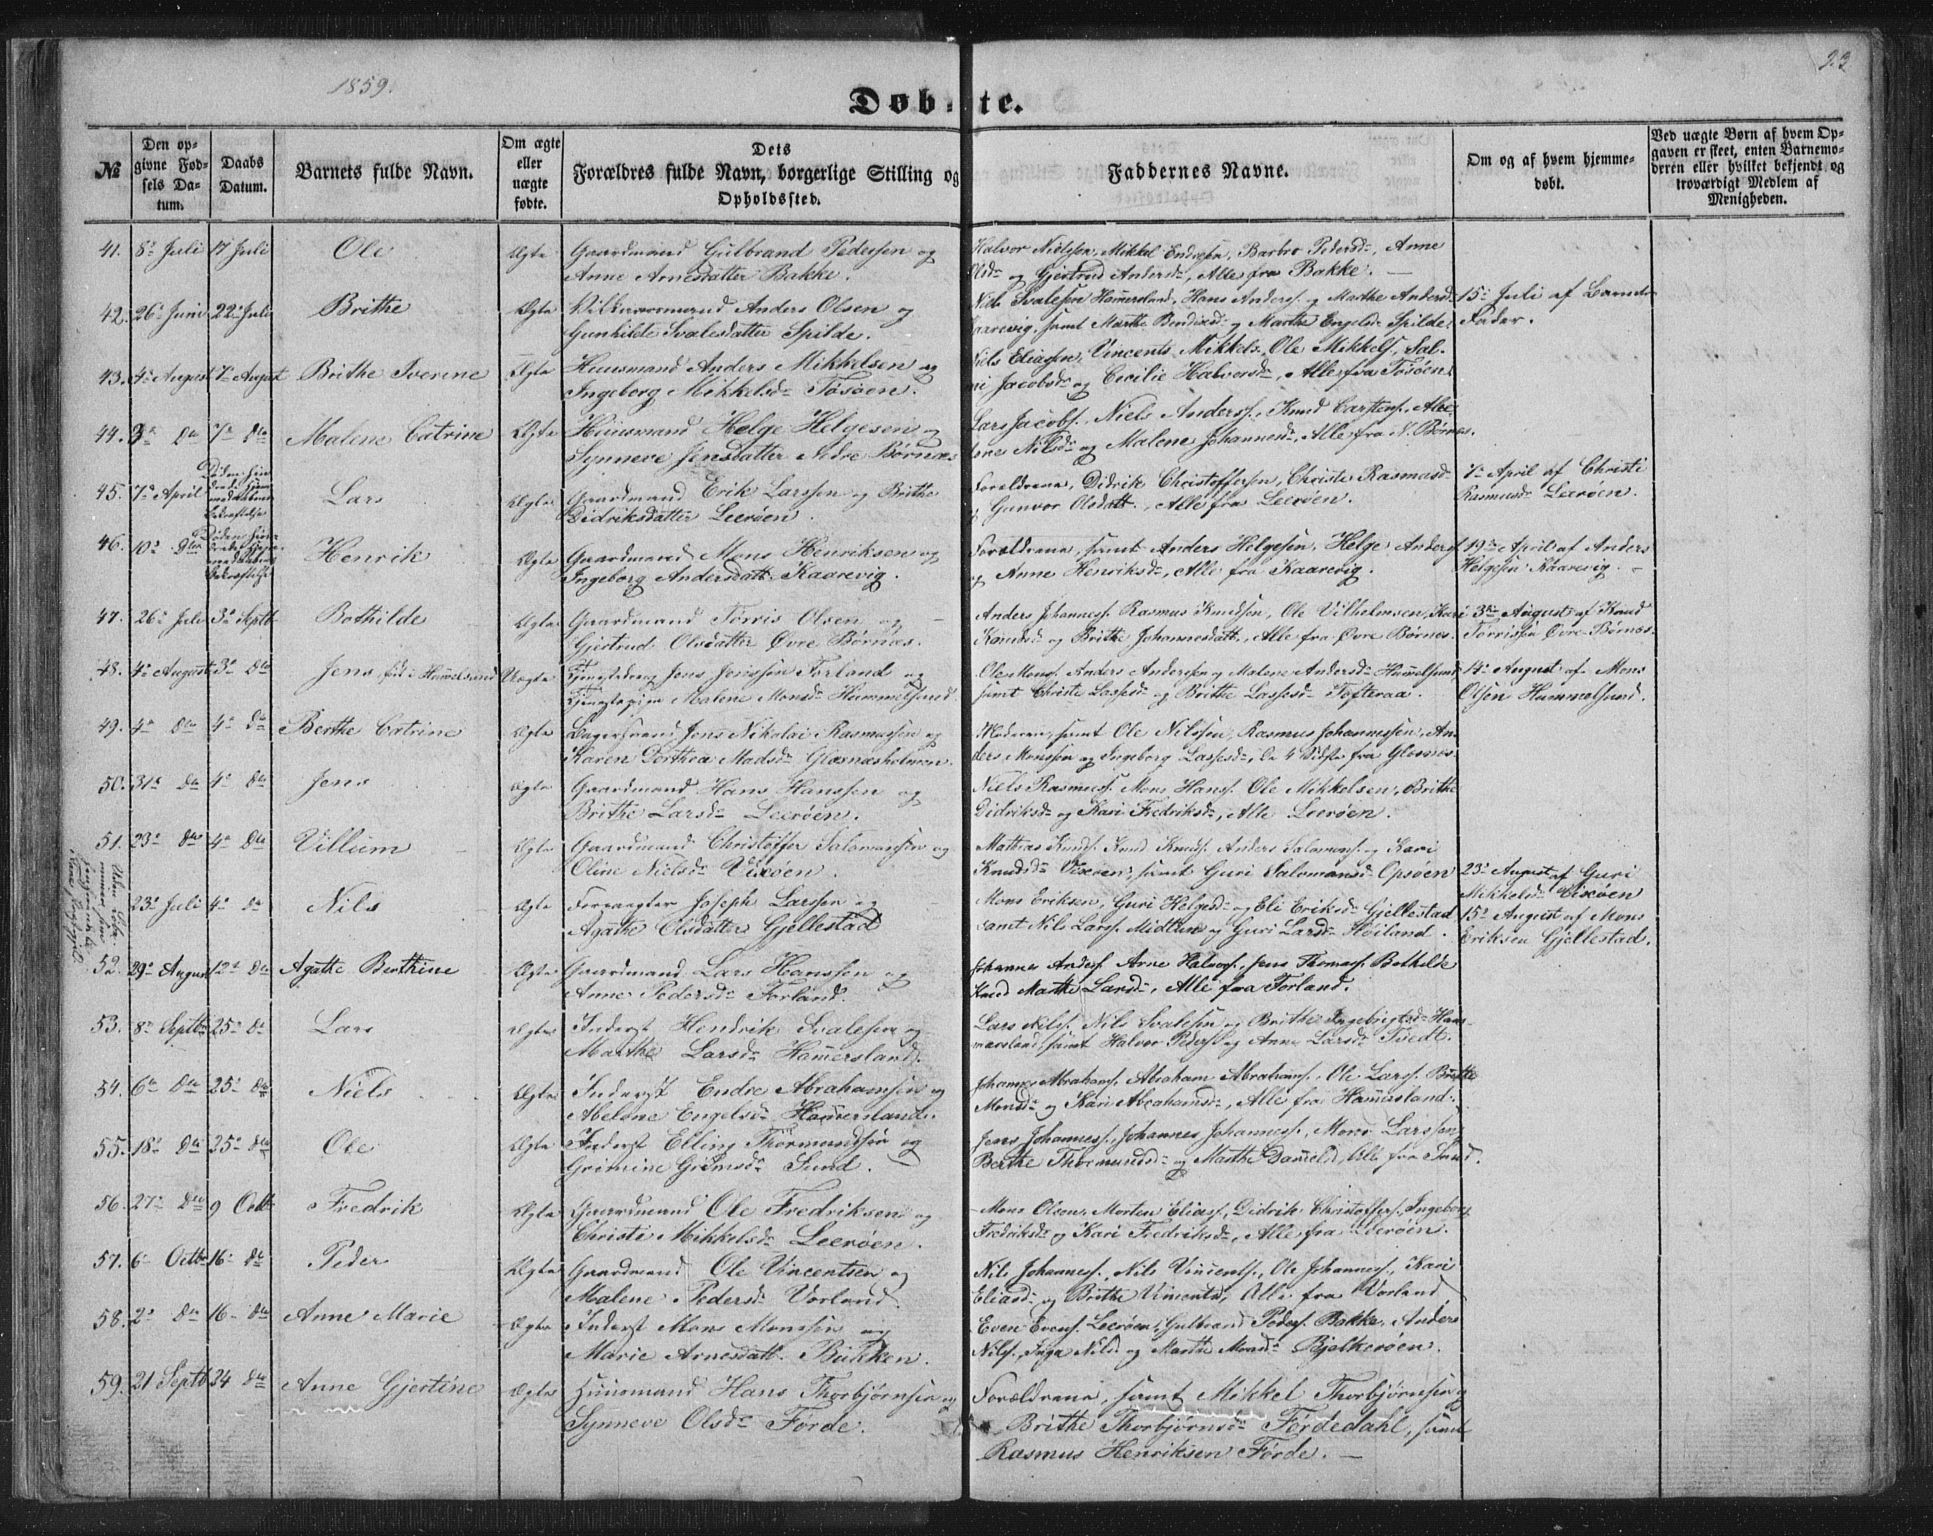 1859.
23
Døbte.
№
Den opgivne Fødsels Datum.
Daabs Datum.
Barnets fulde Navn.
Om ægte eller uægte fødte.
Dets Forældres fulde Navn, borgerlige Stilling og Opholdssted.
Faddernes Navne.
Om og af hvem hjemmedøbt.
Ved uægte Børn af hvem Opgaven er skeet, enten Barnemoderen eller hvilket bekjendt og troværdigt Medlem af Menigheden.
41. 8de Juli 17 Juli Ole Ægte Gaardmand Gulbrand Pedersen og
Anne Arnesdatter Bakke.
Halvor Nielssen, Mikkel Endresen, Barbro Pedersdr, Anne
Olsdr og Gjertrud Andersdr, Alle fra Bakke.
42. 26de Juni 22de Juli Brithe Ægte Anders Olsen og
Gunhilde Svalesdatter Spilde.
Nils Svalesen Hammersland, Hans Anders. og Marthe Andersd
Kaarevig, samt Marthe Bendixdr og Marthe Engelsdr Spilde.
15de Juli af Barnets
Fader.
43. 4de August 7de August Brithe Iverine Ægte Huusmand Anders Mikkelsen og
Ingeborg Mikkelsdr Tøsøen.
Niels Eliassen, Vincents Mikkels. Ole Mikkels., Sal-
mi Jacobsdr og Cicilie Halvorsdr, Alle fra Tøsøen.
44. 3de do 7de do Malene Catrine Ægte Huusmand Helge Helgesen og
Synneve Jensdatter Nedre Børnæs
Lars Jacobs., Niels Anders., Knud Carstens., Abe-
lone Nilsdr og Malene Johannesdr, Alle fra N. Børnes.
45. 7de April Lars Ægte Gaardmand Erik Larssen og Brithe
Didriksdatter Leerøen.
Forældrene, Didrik Christoffersen, Christi Rasmusd
og Gunvor Olsdatt., Alle fra Leerøen.
7de April af Christi
Rasmusdr Leerøen.
46. 10de Henrik Gaardmand Mons Henriksen og
Ingeborg Andersdatt. Kaarevig.
Forældrene, samt Anders Helgesen, Helge Anders.
og Anne Henriksdr, Alle fra Kaarevig.
19de April af Anders
Helgesen Kaarevig.
47. 26de Juli 3de Septb Bothilde Ægte Gaardmand Tørris Olsen og
Gjertrud Olsdatter Øvre Børnæs.
Anders Johanness. Rasmus Knudsen, Ole Vilhelmsen, Kari
Knudsd og Brithe Johannesdatt., Alle fra Øvre Børnes.
3de August af Knud
Tørrissen Øvre Børnæs.
48. 4de August 3de do Jens født i Hummelsund Uægte Tjenestedreng Jens Jenssen Forland og
Tjenestepige Malene Monsdr Hummelsund.
Ole Mons. Anders Andersen og Malene Andersdr Hummelsund
samt Christi Lassesdr og Brithe Lassesdr Tofteraa.
14de August af Mons
Olsen Hummelsund.
49. 4de do 4de do Berthe Catrine Ægte Jens Nikolai Rasmussen og
Karen Dorthea Madsdr Glæsnæsholmen.
Moderen, samt Ole Nilssen, Rasmus Johannessen, An-
ders Monssen og Ingeborg Lassesdr, de 4 sidste fra Glesnes.
50. 31de do 4de do Jens Ægte Gaardmand Hans Hanssen og
Brithe Larsdr Leerøen.
Niels Rasmuss. Mons Hans. Ole Mikkelsen, Brithe
Didriksdr og Kari Fredriksdr, Alle Leerøen.
51. 23de do 4de do Villum Ægte Gaardmand Christoffer Salomonsen og
Oline Nielsdr Vixøen.
Mathias Knuds. Knud Knuds. Anders Salomons. og Kari
Knudsdr Vixøen, samt Guri Salomonsdr Opsøen
23de August af Guri
Mikkelsdr Vixøen
23de Juli 4de do Nils Ægte Forpagter Joseph Larssen og
Agathe Olsdatter Gjellestad
Mons Eriksen, Guri Helgesdr og Eli Eriksdr Gjellestad
samt Nils Lars. Midtun og Guri Larsdr Høiland.
15de August af Mons
Eriksen Gjellestad.
52. 29de August 12te do Agathe Berthine Ægte Gaardmand Lars Hanssen og
Anne Pedersdr Forland.
Johannes Anders. Arne Halvors., Jens Thomas. Bothilde
Knud Marthe Larsdr, Alle fra Forland.
53. 8de Septb 25de do Lars Ægte Inderst Hendrik Svalesen og
Marthe Larsdr Hammersland.
Lars Nils. Nils Svalesen og Brithe Ingebrigtsdr Ham-
mersland, samt Halvor Peders. og Anne Larsdr Tvedt.
54. 6te do 25de do Niels Ægte Inderst Endre Abrahamsen og
Abelone Engelsdr Hammersland.
Johannes Abrahams. Abraham Abrahams., Ole Lars. Brithe
Monsdr og Kari Abrahamsdr, Alle fra Hammersland.
55. 18de do 25de do Ole Ægte Inderst Elling Thormundsen og
Grimine Grimsdr Sund.
Jens Johanness., Johannes Johanness., Mons Larssen,
Berthe Thormundsdr og Marthe Danieldr, Alle fra Sund.
56. 27de do 9 Octb Fredrik Ægte Gaardmand Ole Fredriksen og
Christi Mikkelsdr Leerøen.
Mons Olsen, Morten Elias., Didrik Christoffers., Ingeborg
Fredriksdr og Kari Fredriksdr, Alle fra Leerøen.
57. 6te Octb 16de do Peder Ægte Gaardmand Ole Vincentsen og
Malene Pedersdr Vorland.
Nils Johanness., Nils Vincents., Ole Johanness., Kari
Eliasdr og Brithe Vincentsd, Alle fra Vorland
58. 2de do 16de do Anne Marie Ægte Inderst Mons Monssen og
Marie Arnesdatt. Bukken.
Even Evens. Leerøen, Gulbrand Peders. Bakke, Anders
Nils., Inga Nilsd og Marthe Monsdr Bjelkerøen.
59. 21 Septb 24 do Anne Gjertine Ægte Huusmand Hans Thorbjørnsen og
Synneve Olsdr Førde.
Forældrene, samt Mikkel Thorbjørnsen og
Brithe Thorbjørnsdr Førdedahl, samt
Rasmus Henriksen Førde.